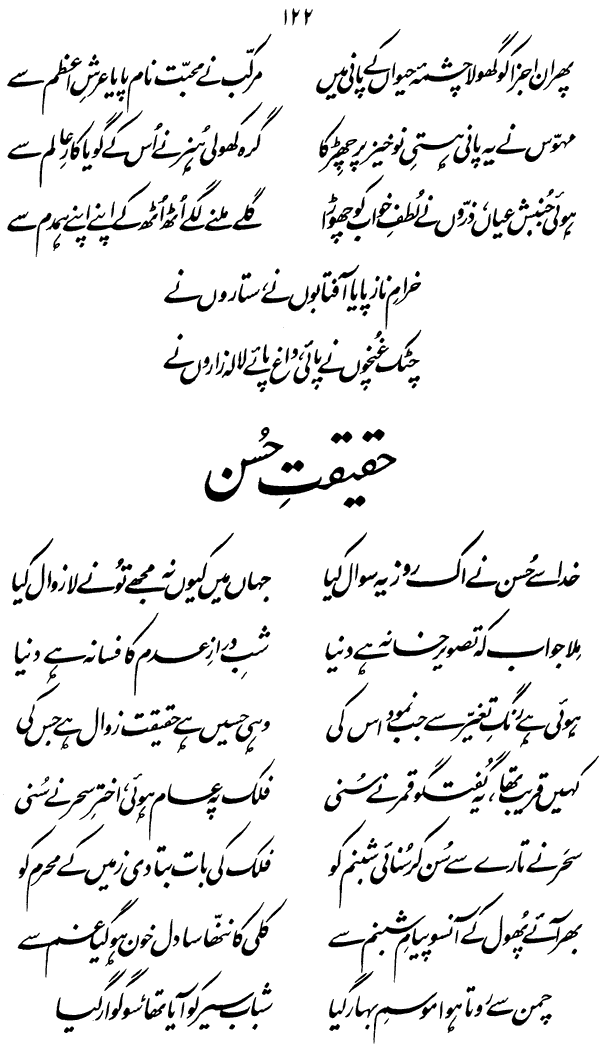 ۱۲۲
پھر ان اجزا کو گھولا چشمۂ حیواں کے پانی میں مرکّب نے محبّت نام پایا عرشِ اعظم سے
مہوّس نے یہ پانی ہستیِ نوخیز پر چھڑکا گرہ کھولی ہُنر نے اُس کے گویا کارِ عالم سے
ہوئی جُنبش عیاں، ذرّوں نے لُطفِ خواب کو چھوڑا گلے ملنے لگے اُٹھ اُٹھ کے اپنے اپنے ہمدم سے
خرامِ ناز پایا آفتابوں نے، ستاروں نے
چٹک غُنچوں نے پائی، داغ پائے لالہ زاروں نے
حقیقتِ حُسن
خدا سے حُسن نے اک روز یہ سوال کیا جہاں میں کیوں نہ مجھے تُو نے لازوال کیا
مِلا جواب کہ تصویر خانہ ہے دنیا شبِ درازِ عدم کا فسانہ ہے دنیا
ہوئی ہے رنگِ تغیّر سے جب نمود اس کی وہی حسیں ہے حقیقت زوال ہے جس کی
کہیں قریب تھا، یہ گُفتگو قمر نے سُنی فلک پہ عام ہوئی، اخترِ سحر نے سُنی
سحَر نے تارے سے سُن کر سُنائی شبنم کو فلک کی بات بتا دی زمیں کے محرم کو
بھر آئے پھُول کے آنسو پیامِ شبنم سے کلی کا ننھّا سا دل خون ہو گیا غم سے
چمن سے روتا ہوا موسمِ بہار گیا شباب سیر کو آیا تھا، سوگوار گیا